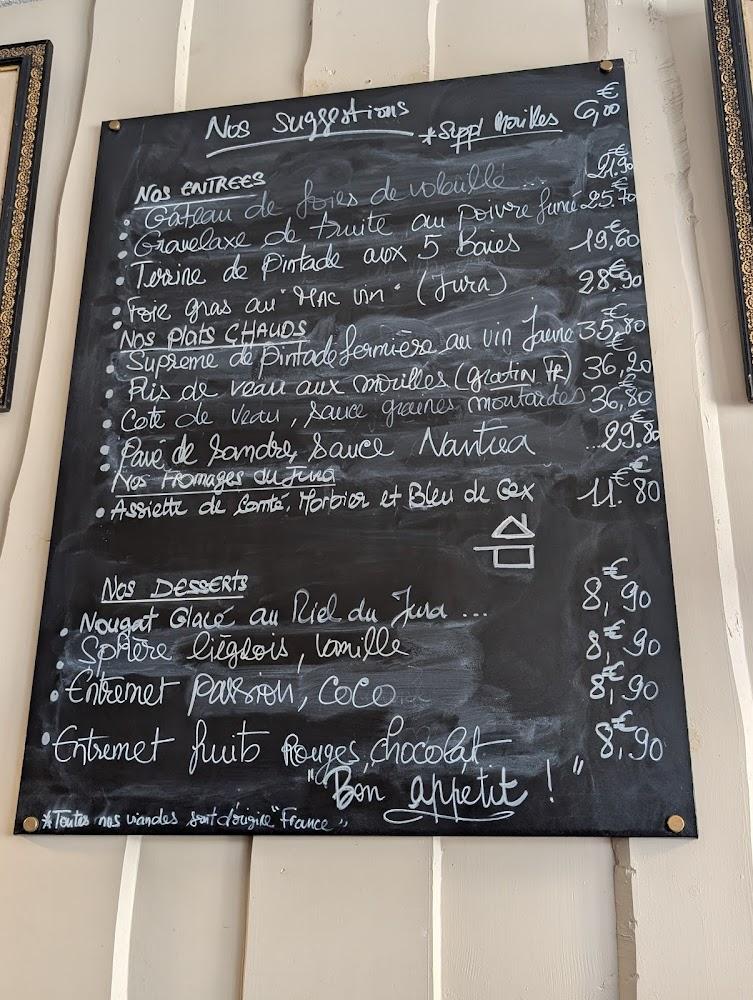 Nos Suggestions
*Suppl Morilles 6,00 €
Nos ENTREES
• Gateau de foies de volaille ... 21.90 €
• Gravelaxe de truite au poivre fumé 25.70 €
• Terrine de Pintade aux 5 Baies 19,60
• Foie gras au "Mac vin" (Jura) 28,90 €
Nos Plats CHAUDS
• Supreme de Pintade fermière au vin Jaune 35,80 €
• Ris de veau aux morilles (gratin) 36,20 €
• Cote de veau, sauce graines moutardes 36,80 €
• Pavé de Sandre, Sauce Nantua ...29.80
Nos Fromages du Jura
• Assiette de Comté, Morbier et Bleu de Gex 11.80 €
Nos DESSERTS
• Nougat Glacé au Miel du Jura ... 8,90 €
• Sphère liégeois, vanille 8,90 €
• Entremet passion, coco 8,90 €
• Entremet fruits Rouges, chocolat 8,90 €
"Bon appetit ! "
*Toutes nos viandes sont d'origine "France"